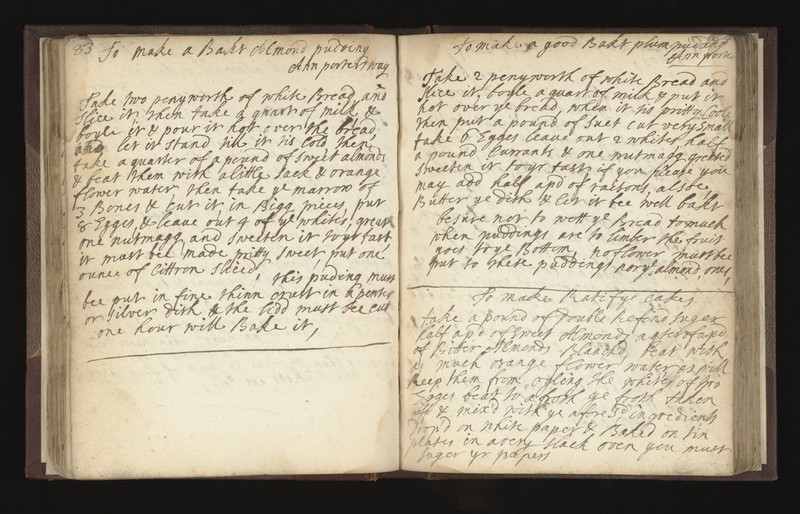 83 To make a Bakt Almond pudding
Ahn porters way
Take two penyworth of white Bread, and
slice it, then take a quart of milk &
boyle it & pour it hot over the bread,
and let it stand till it is Cold, then
take a quarter of a pound of sweet almonds
& beat them with a little Sack & orange
flower water, then take ye marrow of
3 Bones & cut it in Bigg pieces, put
8 Egges, & leave out 4 of ye whites, great
one nutmagg, and sweeten it to yr tast,
it must bee made pritty sweet, put one
ounce of Cittron sliced, this puding must
bee put in fine thinn crust in a pewter
or silver dish & the lidd must bee cut
one hour will Bake it,
To make a good Bakt plum pudding
Ann porter
Take 2 penyworth of white Bread and
slice it, boyle a quart of milk & put it
hot over ye bread, when it is pritty Coole
then put a pound of suet cut very small
take 6 Egges leave out 2 whites, half
a pound Currants & one nutmagg greeted
sweeten it to yr tast; if you please you
may add half a pd of raisons, also
Butter ye dish & let it bee well bakt
besure not to wett ye Bread to much
when puddings are to limber the fruit
goes to ye Bottom, no flower must bee
put to these puddings nor ye almond ones,
To make Ratifye cakes
take a pound of double refind suger
half a pd of sweet Almonds, a
of Bitter Almonds Blanchd, beat with
as much orange flower water as will
keep them from oyling the whites of two
Egges beat to a froth ye froth taken
off & mixd with ye aforesd ingredients
dropd on white paper & Baked on tin
plates in a very slack oven you must
suger yr papers